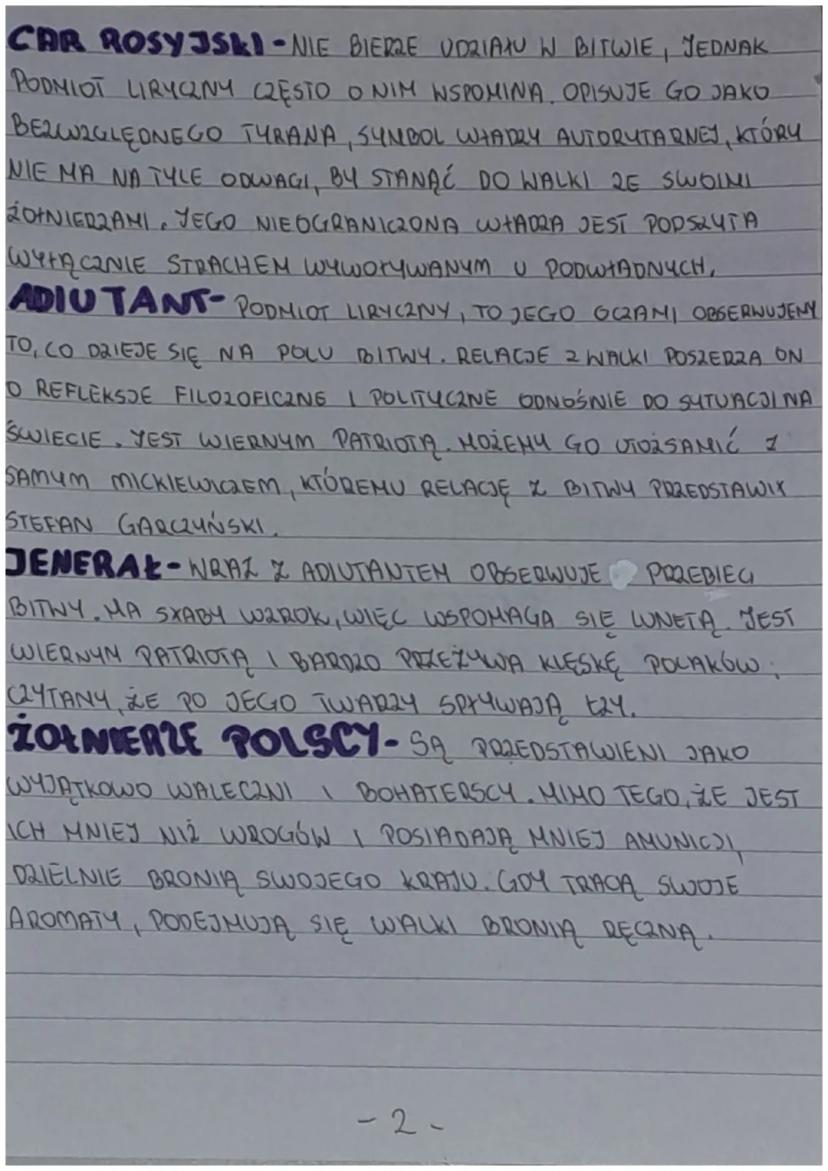 CAR ROSYJSKI - NIE BIERZE UDZIAŁU W BITWIE, JEDNAK
PODMIOT LIRYCZNY CZĘSTO O NIM WSPOMINA. OPISUJE GO JAKO
BEZWZGLĘDNEGO TYRANA, SYMBOL WŁADZY AUTORYTARNEJ, KTÓRY
NIE MA NA TYLE ODWAGI, BY STANĄĆ DO WALKI ZE SWOIMI
ŻOŁNIERZAMI. JEGO NIEOGRANICZONA WŁADZA JEST PODSZYTA
WYŁĄCZNIE STRACHEM WYWOŁYWANYM U PODWŁADNYCH.
ADIUTANT - PODMIOT LIRYCZNY, TO JEGO OCZAMI OBSERWUJEMY
TO, CO DZIEJE SIĘ NA POLU BITWY. RELACJE Z WALKI POSZERZA ON
O REFLEKSJE FILOZOFICZNE I POLITYCZNE ODNOŚNIE DO SYTUACJI NA
ŚWIECIE. JEST WIERNYM PATRIOTĄ. MOŻEMY GO UTOŻSAMIĆ Z
SAMYM MICKIEWICZEM, KTÓREMU RELACJĘ Z BITWY PRZEDSTAWIŁ
STEFAN GARCZYŃSKI.
JENERAŁ - WRAZ Z ADIUTANTEM OBSERWUJE PRZEBIEG
BITWY. MA SŁABY WZROK, WIĘC WSPOMAGA SIĘ LUNETĄ. JEST
WIERNYM PATRIOTĄ I BARDZO PRZEŻYWA KLĘSKĘ POLAKÓW.
CZYTAMY, ŻE PO JEGO TWARZY SPŁYWAJĄ ŁZY.
ŻOŁNIERZE POLSCY - SĄ PRZEDSTAWIENI JAKO
WYJĄTKOWO WALECZNI I BOHATERSCY. MIMO TEGO, ŻE JEST
ICH MNIEJ NIŻ WROGÓW I POSIADAJĄ MNIEJ AMUNICJI,
DZIELNIE BRONIĄ SWOJEGO KRAJU. GDY TRACĄ SWOJE
AROMATY, PODEJMUJĄ SIĘ WALKI BRONIĄ RĘCZNĄ.
- 2 -